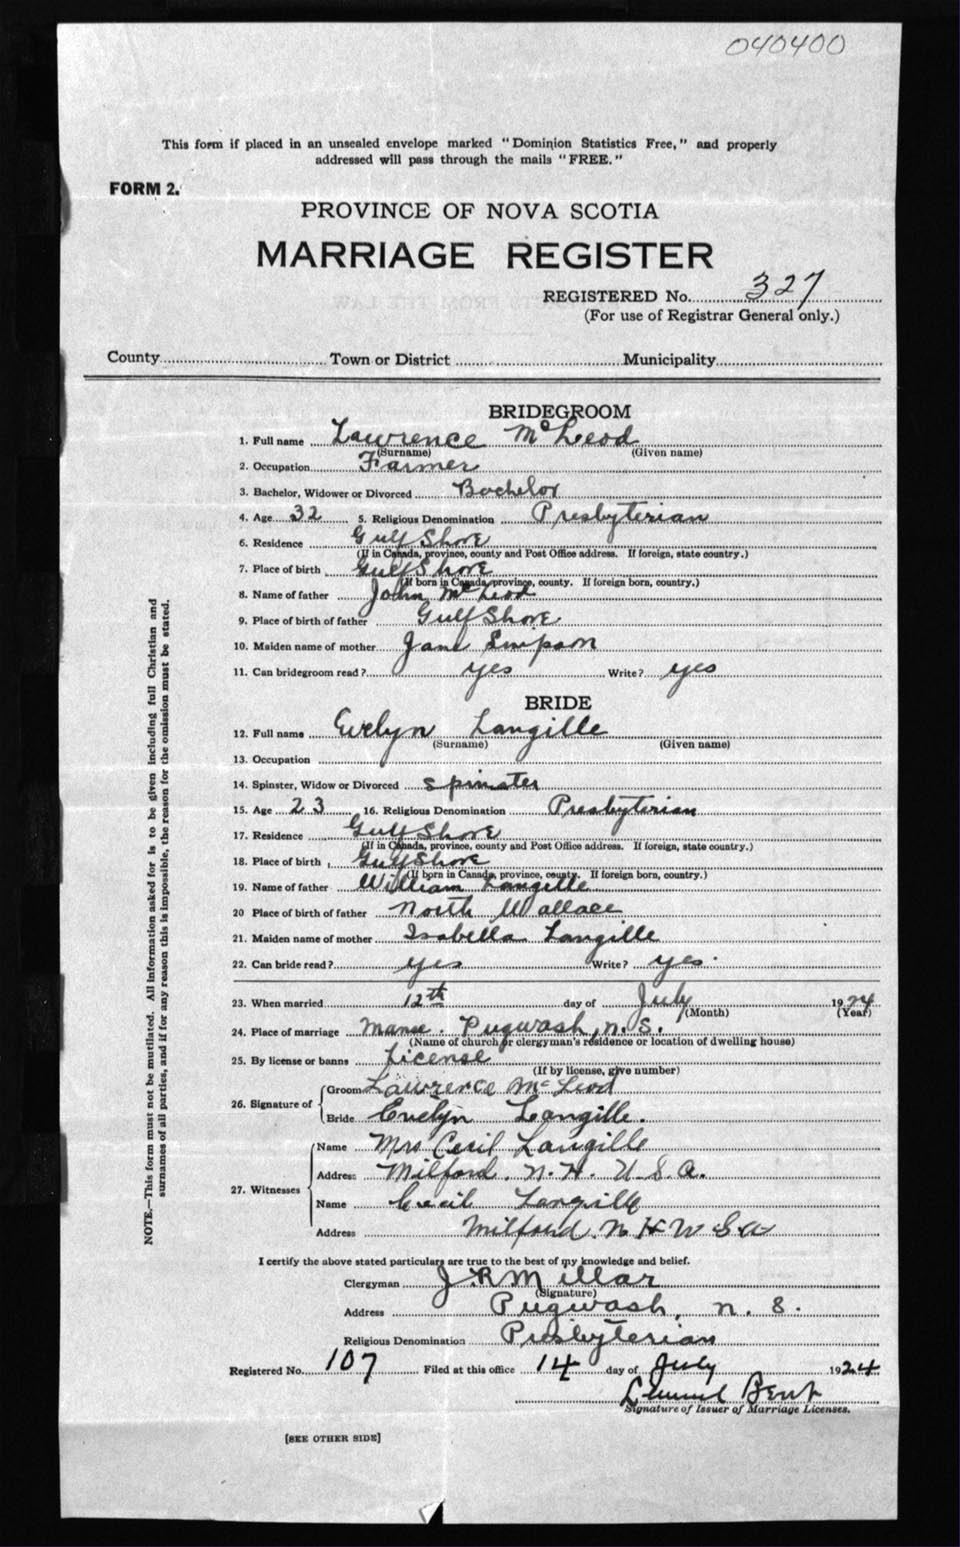 040400
This form if placed in an unsealed envelope marked "Dominion Statistics Free," and properly
addressed will pass through the mails "FREE."
FORM 2.
PROVINCE OF NOVA SCOTIA
MARRIAGE REGISTER
REGISTERED No. 327
(For use of Registrar General only.)
County Town or District Municipality
BRIDEGROOM
1. Full name Lawrence McLeod
(Surname) (Given name)
2. Occupation Farmer
3. Bachelor, Widower or Divorced Bachelor
4. Age 32 5. Religious Denomination Presbyterian
6. Residence Gulf Shore
(If in Canada, province, county and Post Office address. If foreign, state country.)
7. Place of birth Gulf Shore
(If born in Canada, province, county. If foreign born, country.)
8. Name of father John McLeod
9. Place of birth of father Gulf Shore
10. Maiden name of mother Jane Simpson
11. Can bridegroom read? yes Write? yes
BRIDE
12. Full name Evelyn Langille
(Surname) (Given name)
13. Occupation
14. Spinster, Widow or Divorced spinster
15. Age 23 16. Religious Denomination Presbyterian
17. Residence Gulf Shore
(If in Canada, province, county and Post Office address. If foreign, state country.)
18. Place of birth Gulf Shore
(If born in Canada, province, county. If foreign born, country.)
19. Name of father William Langille
20 Place of birth of father North Wallace
21. Maiden name of mother Isabella Langille
22. Can bride read? yes Write? yes.
23. When married 12th day of July 1924
(Month) (Year)
24. Place of marriage Manse. Pugwash, N.S.
(Name of church or clergyman's residence or location of dwelling house)
25. By license or banns License
(If by license, give number)
26. Signature of Groom Lawrence McLeod
Bride Evelyn Langille.
27. Witnesses Name Mrs Cecil Langille
Address Milford. N.H. U.S.A.
Name Cecil Langille
Address Milford. N H U S A
I certify the above stated particulars are true to the best of my knowledge and belief.
Clergyman J R Millar
(Signature)
Address Pugwash, N.S.
Religious Denomination Presbyterian
Registered No. 107 Filed at this office 14 day of July 1924
Lemuel Bent
Signature of Issuer of Marriage Licenses.
[SEE OTHER SIDE]
NOTE.—This form must not be mutilated. All information asked for is to be given including full Christian and
surnames of all parties, and if for any reason this is impossible, the reason for the omission must be stated.